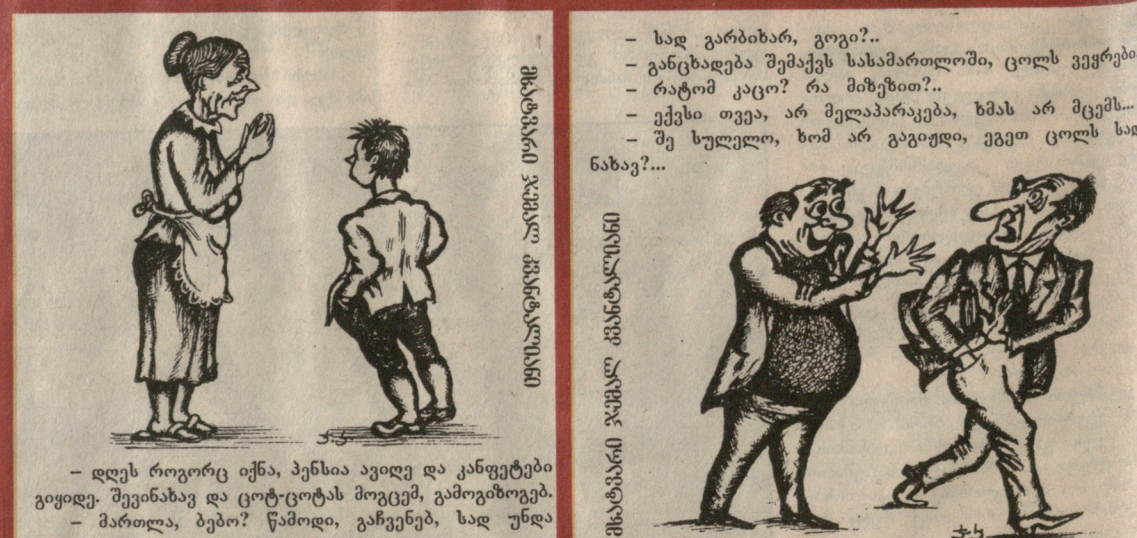 მხატვარი ჯემალ კვანტალიანი
– დღეს როგორც იქნა, პენსია ავიღე და კანფეტები
გიყიდე. შევინახავ და ცოტ-ცოტას მოგცემ, გამოგიზოგებ.
– მართლა, ბებო? წამოდი, გაჩვენებ, სად უნდა
– სად გარბიხარ, გოგი?..
– განცხადება შემაქვს სასამართლოში, ცოლს ვეყრები
– რატომ კაცო? რა მიზეზით?..
– ექვსი თვეა, არ მელაპარაკება, ხმას არ მცემს...
– შე სულელო, ხომ არ გაგიჟდი, ეგეთ ცოლს სად
ნახავ?...
მხატვარი ჯემალ კვანტალიანი